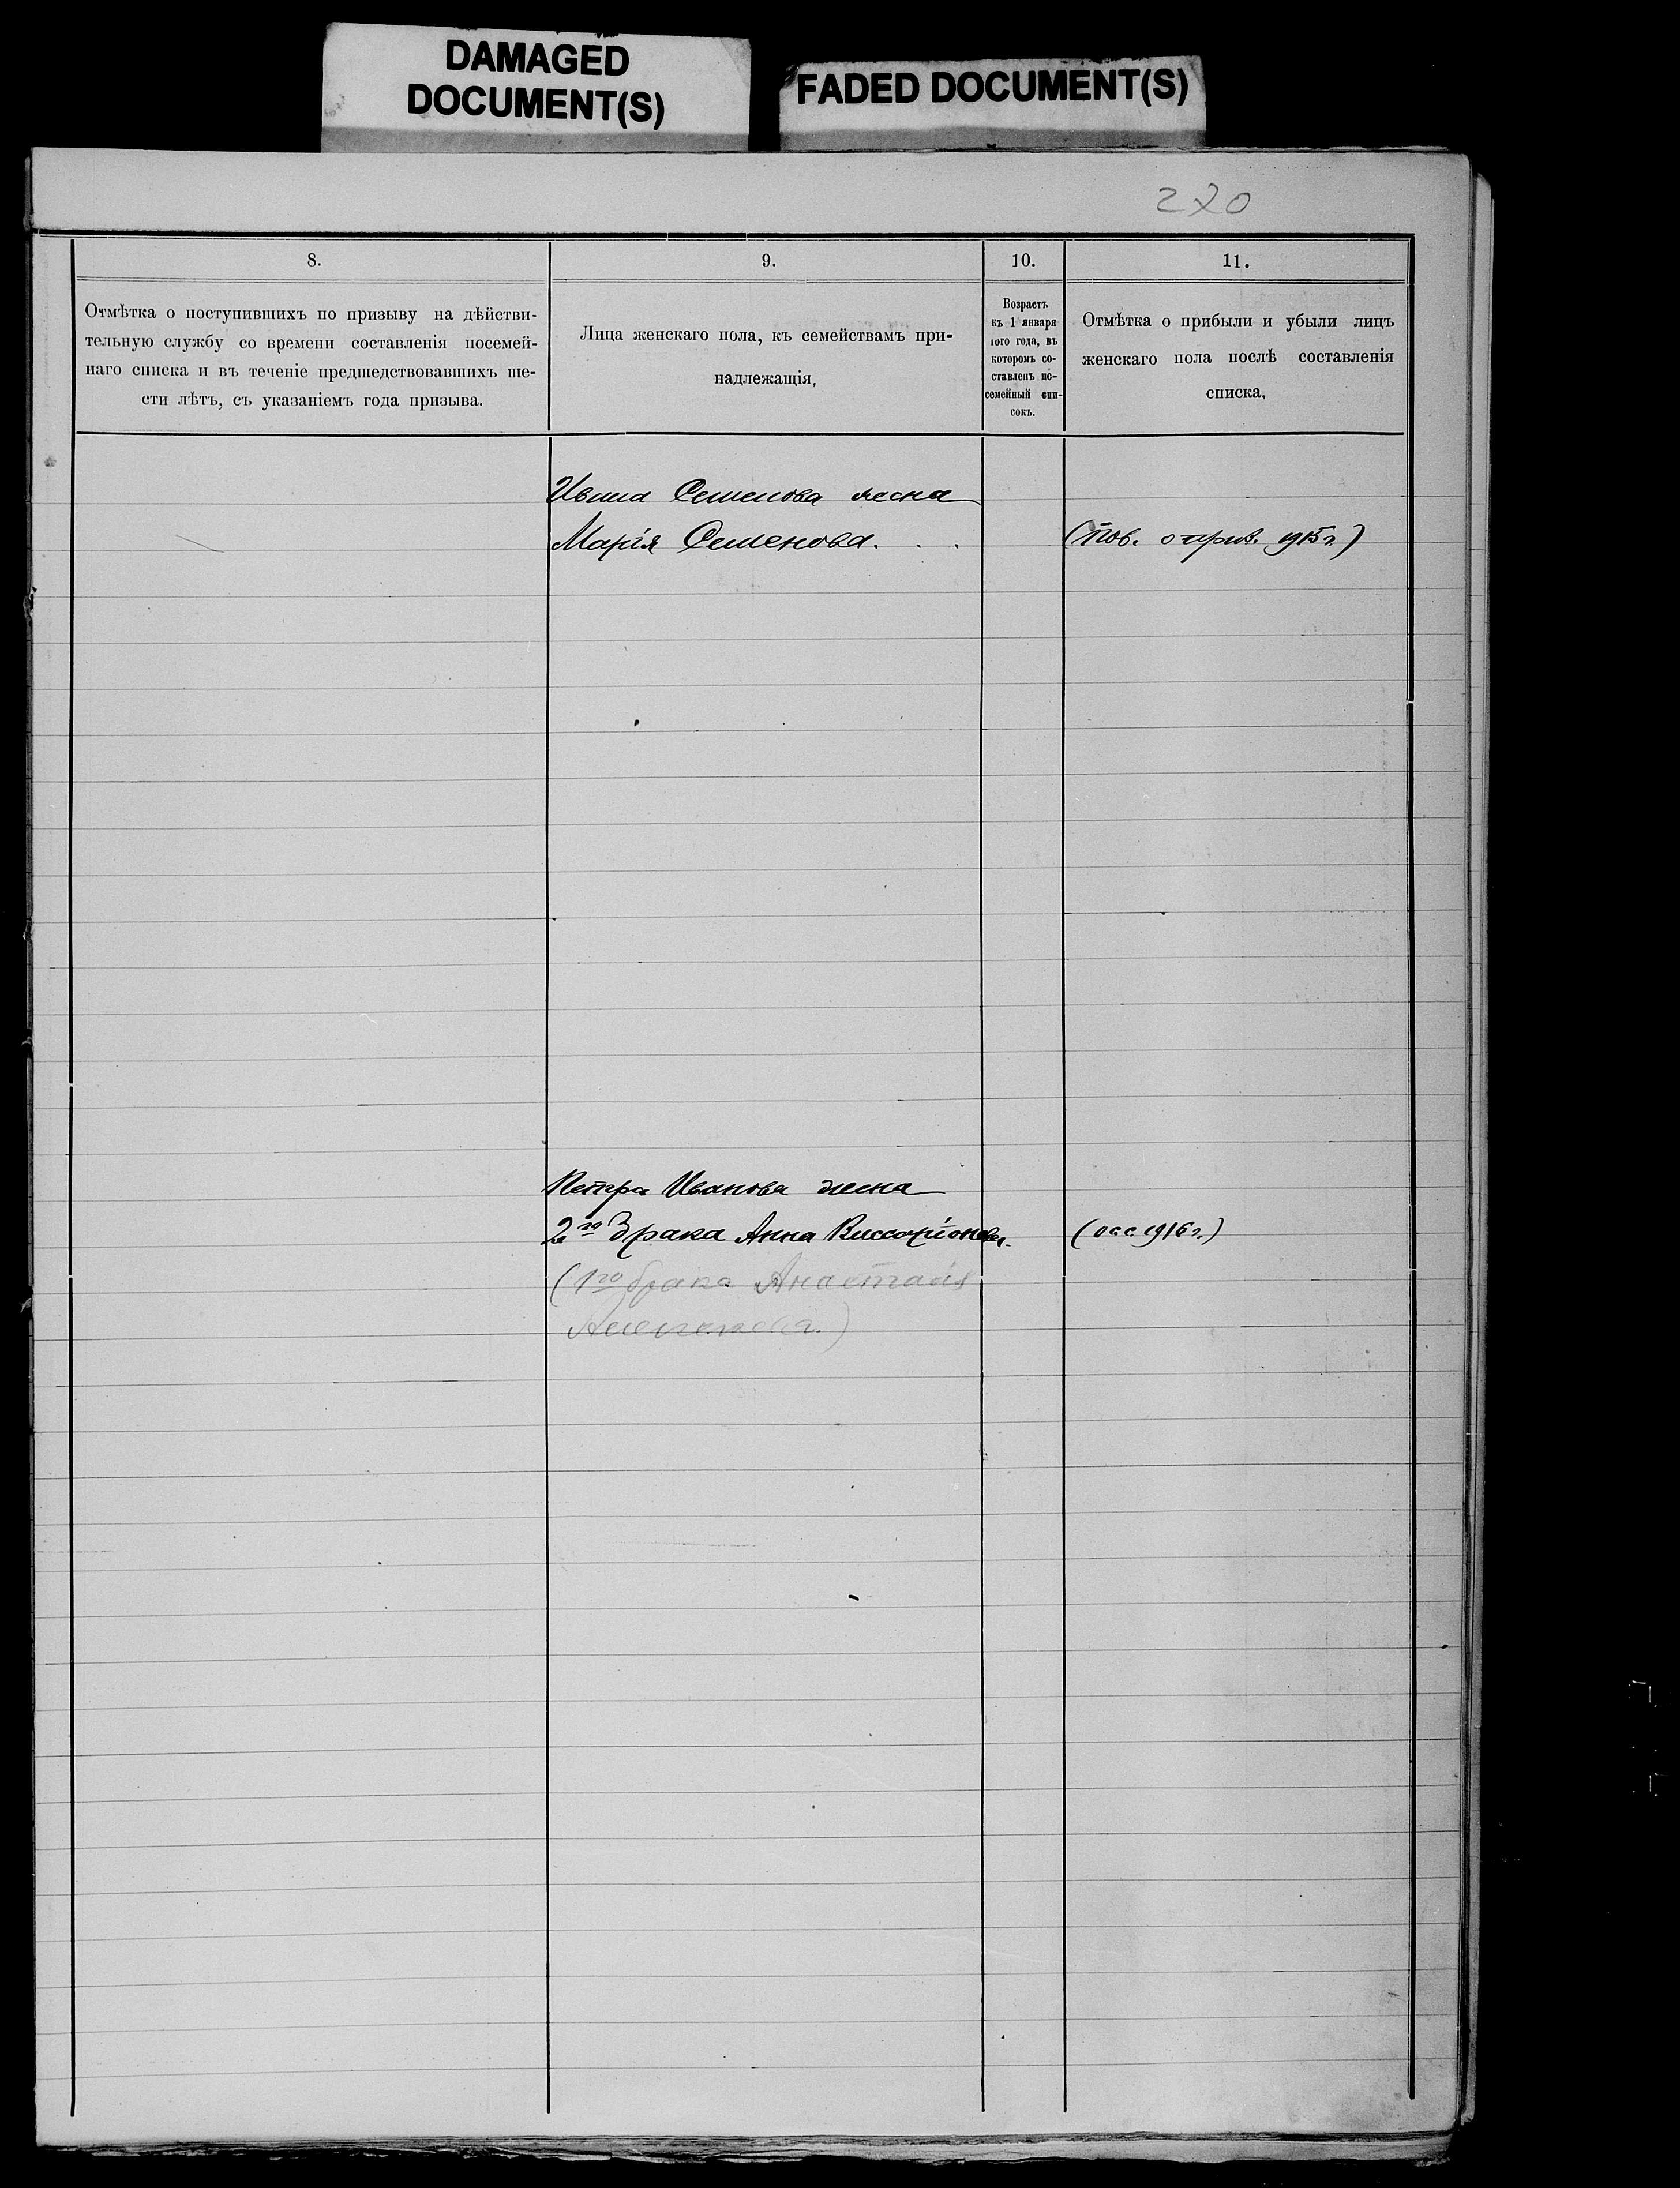 DAMAGED
DOCUMENT(S)
FADED DOCUMENT(S)
270
8.
Отмѣтка о поступившихъ по призыву на дѣйстви-
тельную службу со времени составленія посемей-
наго списка и въ теченіе предшедствовавшихъ ше-
сти лѣтъ, съ указаніемъ года призыва.
9.
Лица женскаго пола, къ семействамъ при-
надлежащія,
10.
Возрастъ
къ 1 января
того года, въ
которомъ со-
ставленъ по-
семейный спи-
сокъ.
11.
Отмѣтка о прибыли и убыли лицъ
женскаго пола послѣ составленія
списка,
Ивана Семенова жена
Марія Семенова. . .
1915 г.)
Петра Иванова жена
2го брака Анна Виссаріонова.
1916 г.)
(1го брака Анастасія